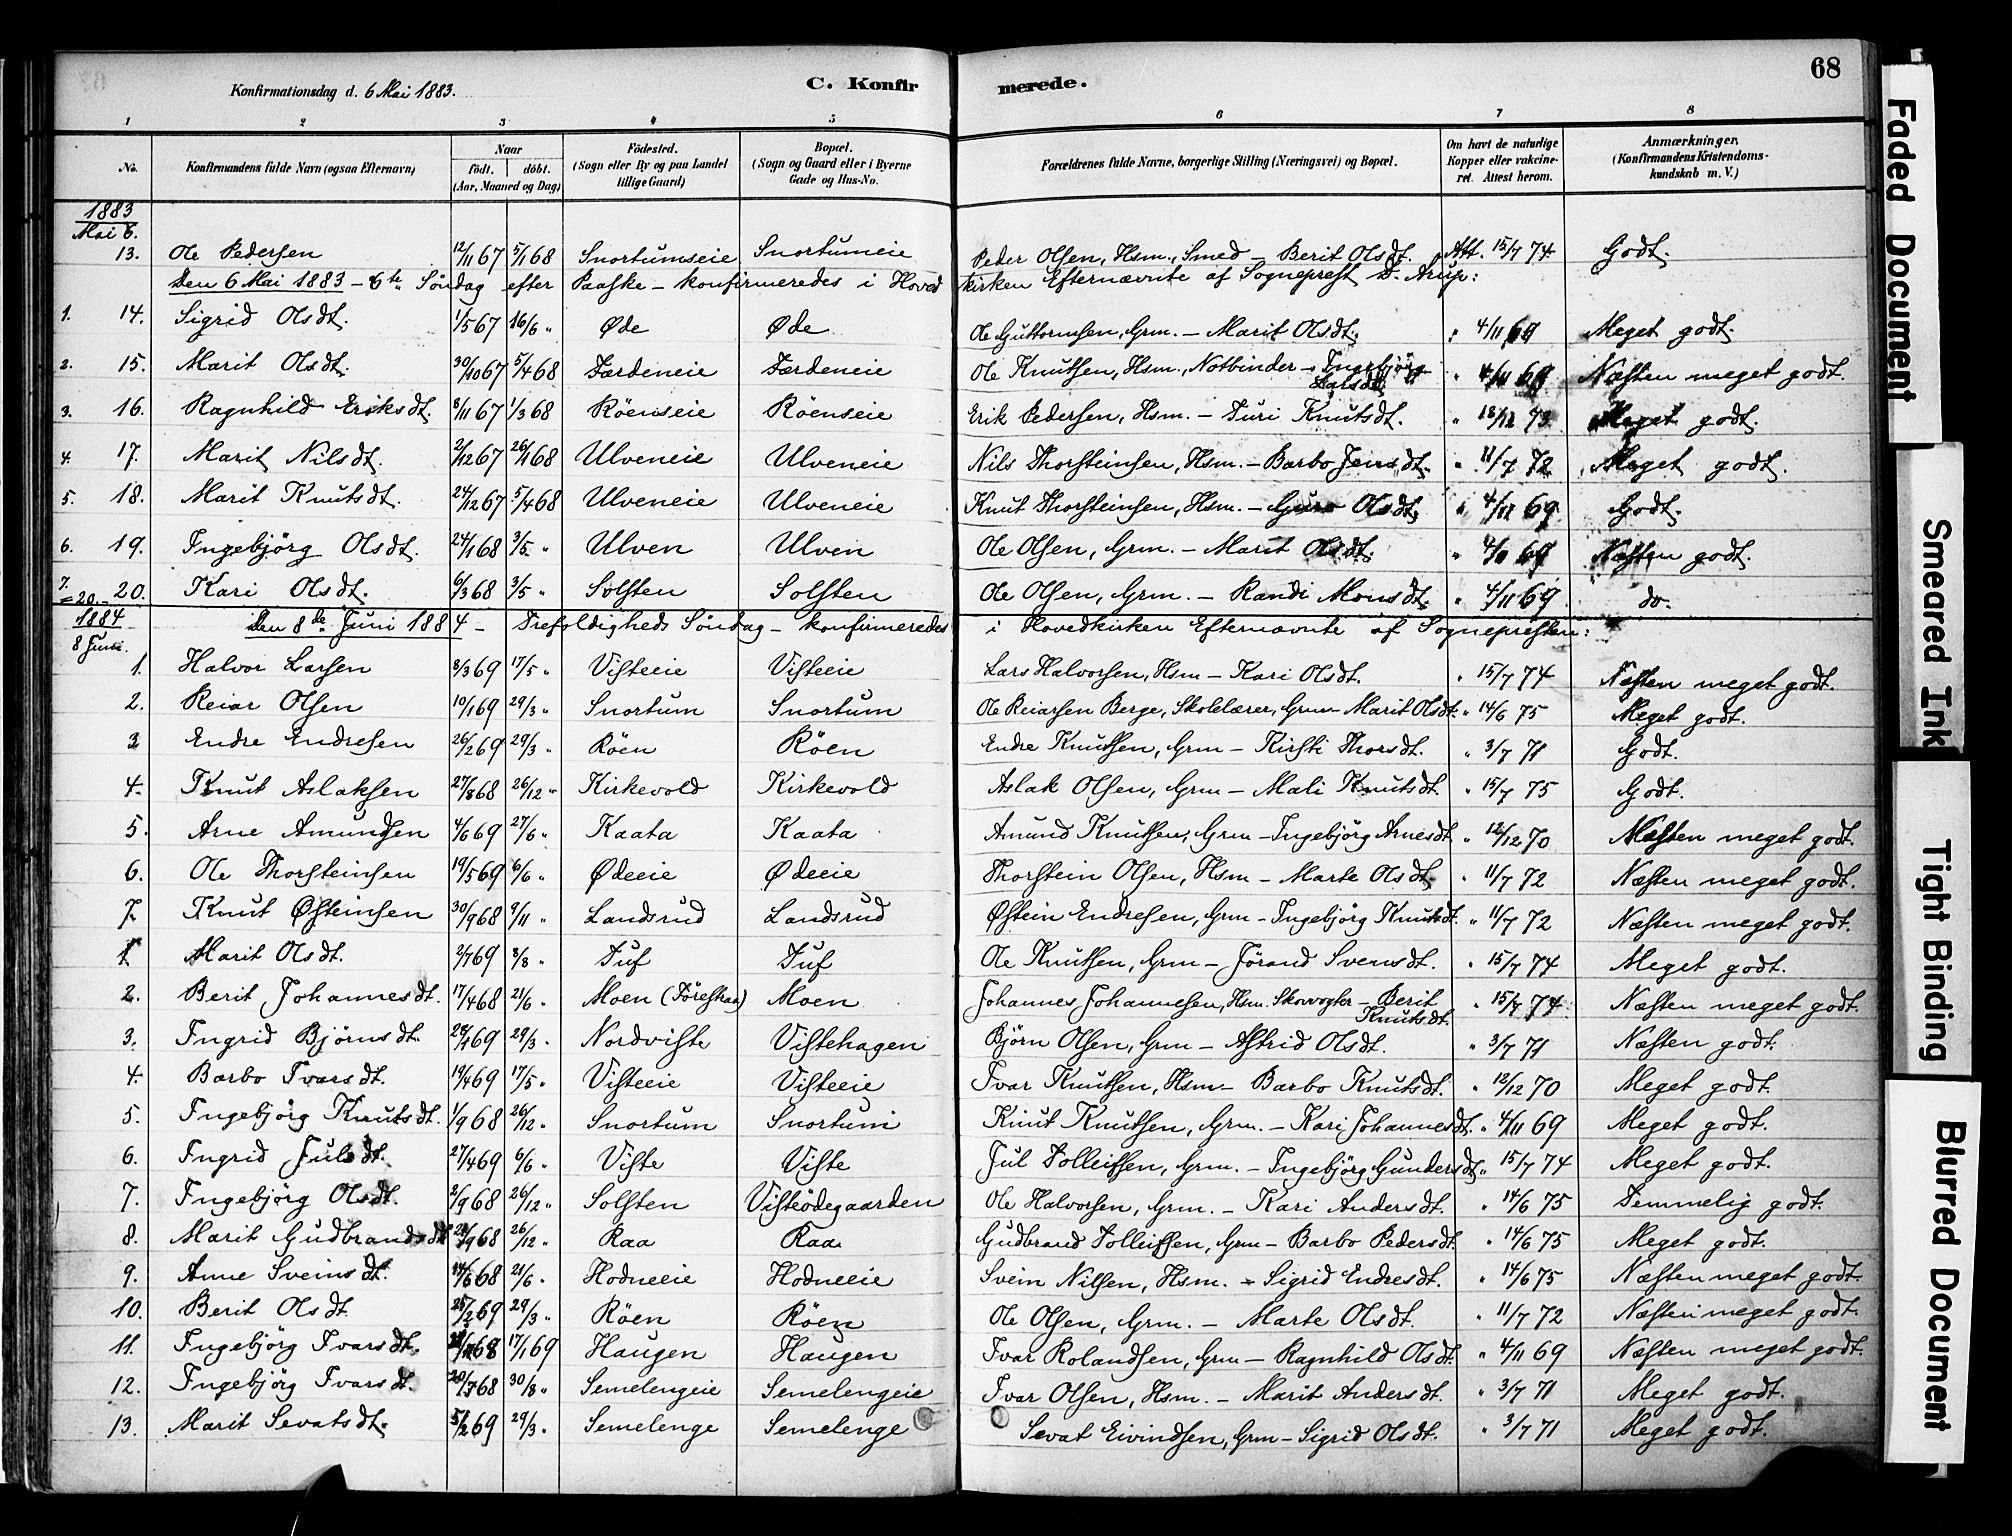 68
Konfirmationsdag d. 6 Mai 1883.
C. Konfirmerede.
1 2 3 4 5 6 7 8
No. Konfirmandens fulde Navn (ogsaa Efternavn) Naar født. døbt. (Aar, Maaned og Dag) Fødested. (Sogn eller By og paa Landet tillige Gaard) Bopæl. (Sogn og Gaard eller i Byerne Gade og Hus-No. Forældrenes fulde Navne, borgerlige Stilling (Næringsvei) og Bopæl. Om havt de naturlige Kopper eller vakcineret. Attest herom. Anmærkninger. (Konfirmandens Kristendomskundskab m. V.)
1883
Mai 6.
13. Ole Pedersen 12/11 67 5/1 68 Snortumseie Snortumeie Peder Olsen, Hsm., Smed – Berit Olsdt. Att. 15/7 74 Godt.
Den 6 Mai 1883 – 6te Söndag efter Paaske – konfirmeredes i Hovedkirken Efternævnte af Sogneprest D. Arup:
1. 14. Sigrid Olsdt. 1/5 67 16/6 " Øde Øde Ole Guttormsen, Grm. – Marit Olsdt. " 4/11 69 Meget godt.
2. 15. Marit Olsdt. 30/10 67 5/4 68 Færdeneie Færdeneie Ole Knutsen, Hsm., Notbinder – Ingebjörg Larsdt. " 4/11 69 Næsten meget godt.
3. 16. Ragnhild Eriksdt. 8/11 67 1/3 68 Röenseie Röenseie Erik Pedersen, Hsm. – Turi Knutsdt. " 18/12 73 Meget godt.
4. 17. Marit Nilsdt. 2/12 67 26/1 68 Ulveneie Ulveneie Nils Thorsteinsen, Hsm. – Barbo Jensdt. " 11/7 72 Meget godt.
5. 18. Marit Knutsdt. 24/12 67 5/4 68 Ulveneie Ulveneie Knut Thorsteinsen, Hsm. – Guro Olsdt. " 4/11 69 Godt.
6. 19. Ingebjörg Olsdt. 24/1 68 3/5 " Ulven Ulven Ole Olsen, Grm. – Marit Olsdt. " 4/11 69 Næsten godt.
7. =20. 20. Kari Olsdt. 6/3 68 3/5 " Solsten Solsten Ole Olsen, Grm. – Randi Monsdt. " 4/11 69 do.
1884
8 Juni.
Den 8de Juni 1884 – Trefoldigheds Söndag – konfirmeredes i Hovedkirken Efternævnte af Sognepresten:
1. Halvor Larsen 8/3 69 17/5 " Visteeie Visteeie Lars Halvorsen, Hsm – Kari Olsdt. " 15/7 74 Næsten meget godt.
2. Reiar Olsen 10/1 69 29/3 " Snortum Snortum Ole Reiarsen Berge, Skolelærer, Grm – Marit Olsdt. " 14/6 75 Meget godt.
3 Endre Endresen 26/2 69 29/3 " Röen Röen Endre Knutsen, Grm – Kirsti Thorsdt. " 3/7 71 Godt.
4. Knut Aslaksen 27/8 68 26/12 " Kirkevold Kirkevold Aslak Olsen, Grm – Mali Knutsdt. " 15/7 75 Godt.
5. Arne Amundsen 4/6 69 27/6 " Kaata Kaata Amund Knutsen, Grm – Ingebjörg Arnesdt. " 12/12 70 Næsten meget godt.
6. Ole Thorsteinsen 19/5 69 6/6 " Ødeeie Ødeeie Thorstein Olsen, Hsm – Marte Olsdt. " 11/7 72 Næsten meget godt.
7. Knut Østeinsen 30/9 68 9/11 " Landsrud Landsrud Østein Endresen, Grm – Ingebjörg Knutsdt. " 11/7 72 Næsten meget godt.
1 Marit Olsdt. 2/7 69 8/8 " Tuf Tuf Ole Knutsen, Grm – Jörand Svensdt. " 15/7 74 Meget godt.
2. Berit Johannesdt. 17/4 68 21/6 " Moen Moen Johannes Johannesen, Hsm. Skovvogter – Berit Knutsdt. " 15/7 74 Næsten meget godt.
3. Ingrid Björnsdt. 28/1 69 29/3 " Nordviste Vistehagen Björn Olsen, Grm – Astrid Olsdt. " 3/7 71 Næsten godt.
4. Barbo Ivarsdt. 19/4 69 17/5 " Visteeie Visteeie Ivar Knutsen, Hsm – Barbo Knutsdt. " 12/12 70 Meget godt.
5. Ingebjörg Knutsdt. 1/9 68 26/12 " Snortum Snortum Knut Knutsen, Grm. – Kari Johannesdt. " 4/11 69 Meget godt.
6. Ingrid Julsdt. 27/4 69 6/6 " Viste Viste Jul Tolleifsen, Grm. – Ingebjörg Gundersdt. " 15/7 74 Meget godt.
7. Ingebjörg Olsdt. 2/9 68 26/12 " Solsten Visteödegaarden Ole Halvorsen, Grm. – Kari Andersdt. " 14/6 75 Temmelig godt.
8. Marit Gudbrandsdt. /9 68 26/12 " Raa Raa Gudbrand Tolleifsen, Grm – Barbo Pedersdt. " 14/6 75 Meget godt.
9. Anne Sveinsdt. 68 21/6 " Hodneeie Hodneeie Svein Nilsen, Hsm. – Sigrid Endresdt. " 14/6 75 Næsten meget godt.
10. Berit Olsdt. 25/2 69 29/3 " Röen Röen Ole Olsen, Grm. – Marte Olsdt. " 11/7 72 Næsten meget godt.
11. Ingebjörg Ivarsdt. 68 17/1 69 Haugen Haugen Ivar Rolandsen, Grm – Ragnhild Olsdt. " 4/11 69 Næsten meget godt.
12. Ingebjörg Ivarsdt. 20/7 68 30/8 " Semelengeie Semelengeie Ivar Olsen, Hsm. – Marit Andersdt. " 3/7 71 Meget godt.
13. Marit Sevatsdt. 5/2 69 29/3 " Semelenge Semelenge Sevat Eivindsen, Grm – Sigrid Olsdt. " 3/7 71 Meget godt.
Faded Document
Smeared Ink
Tight Binding
Blurred Document